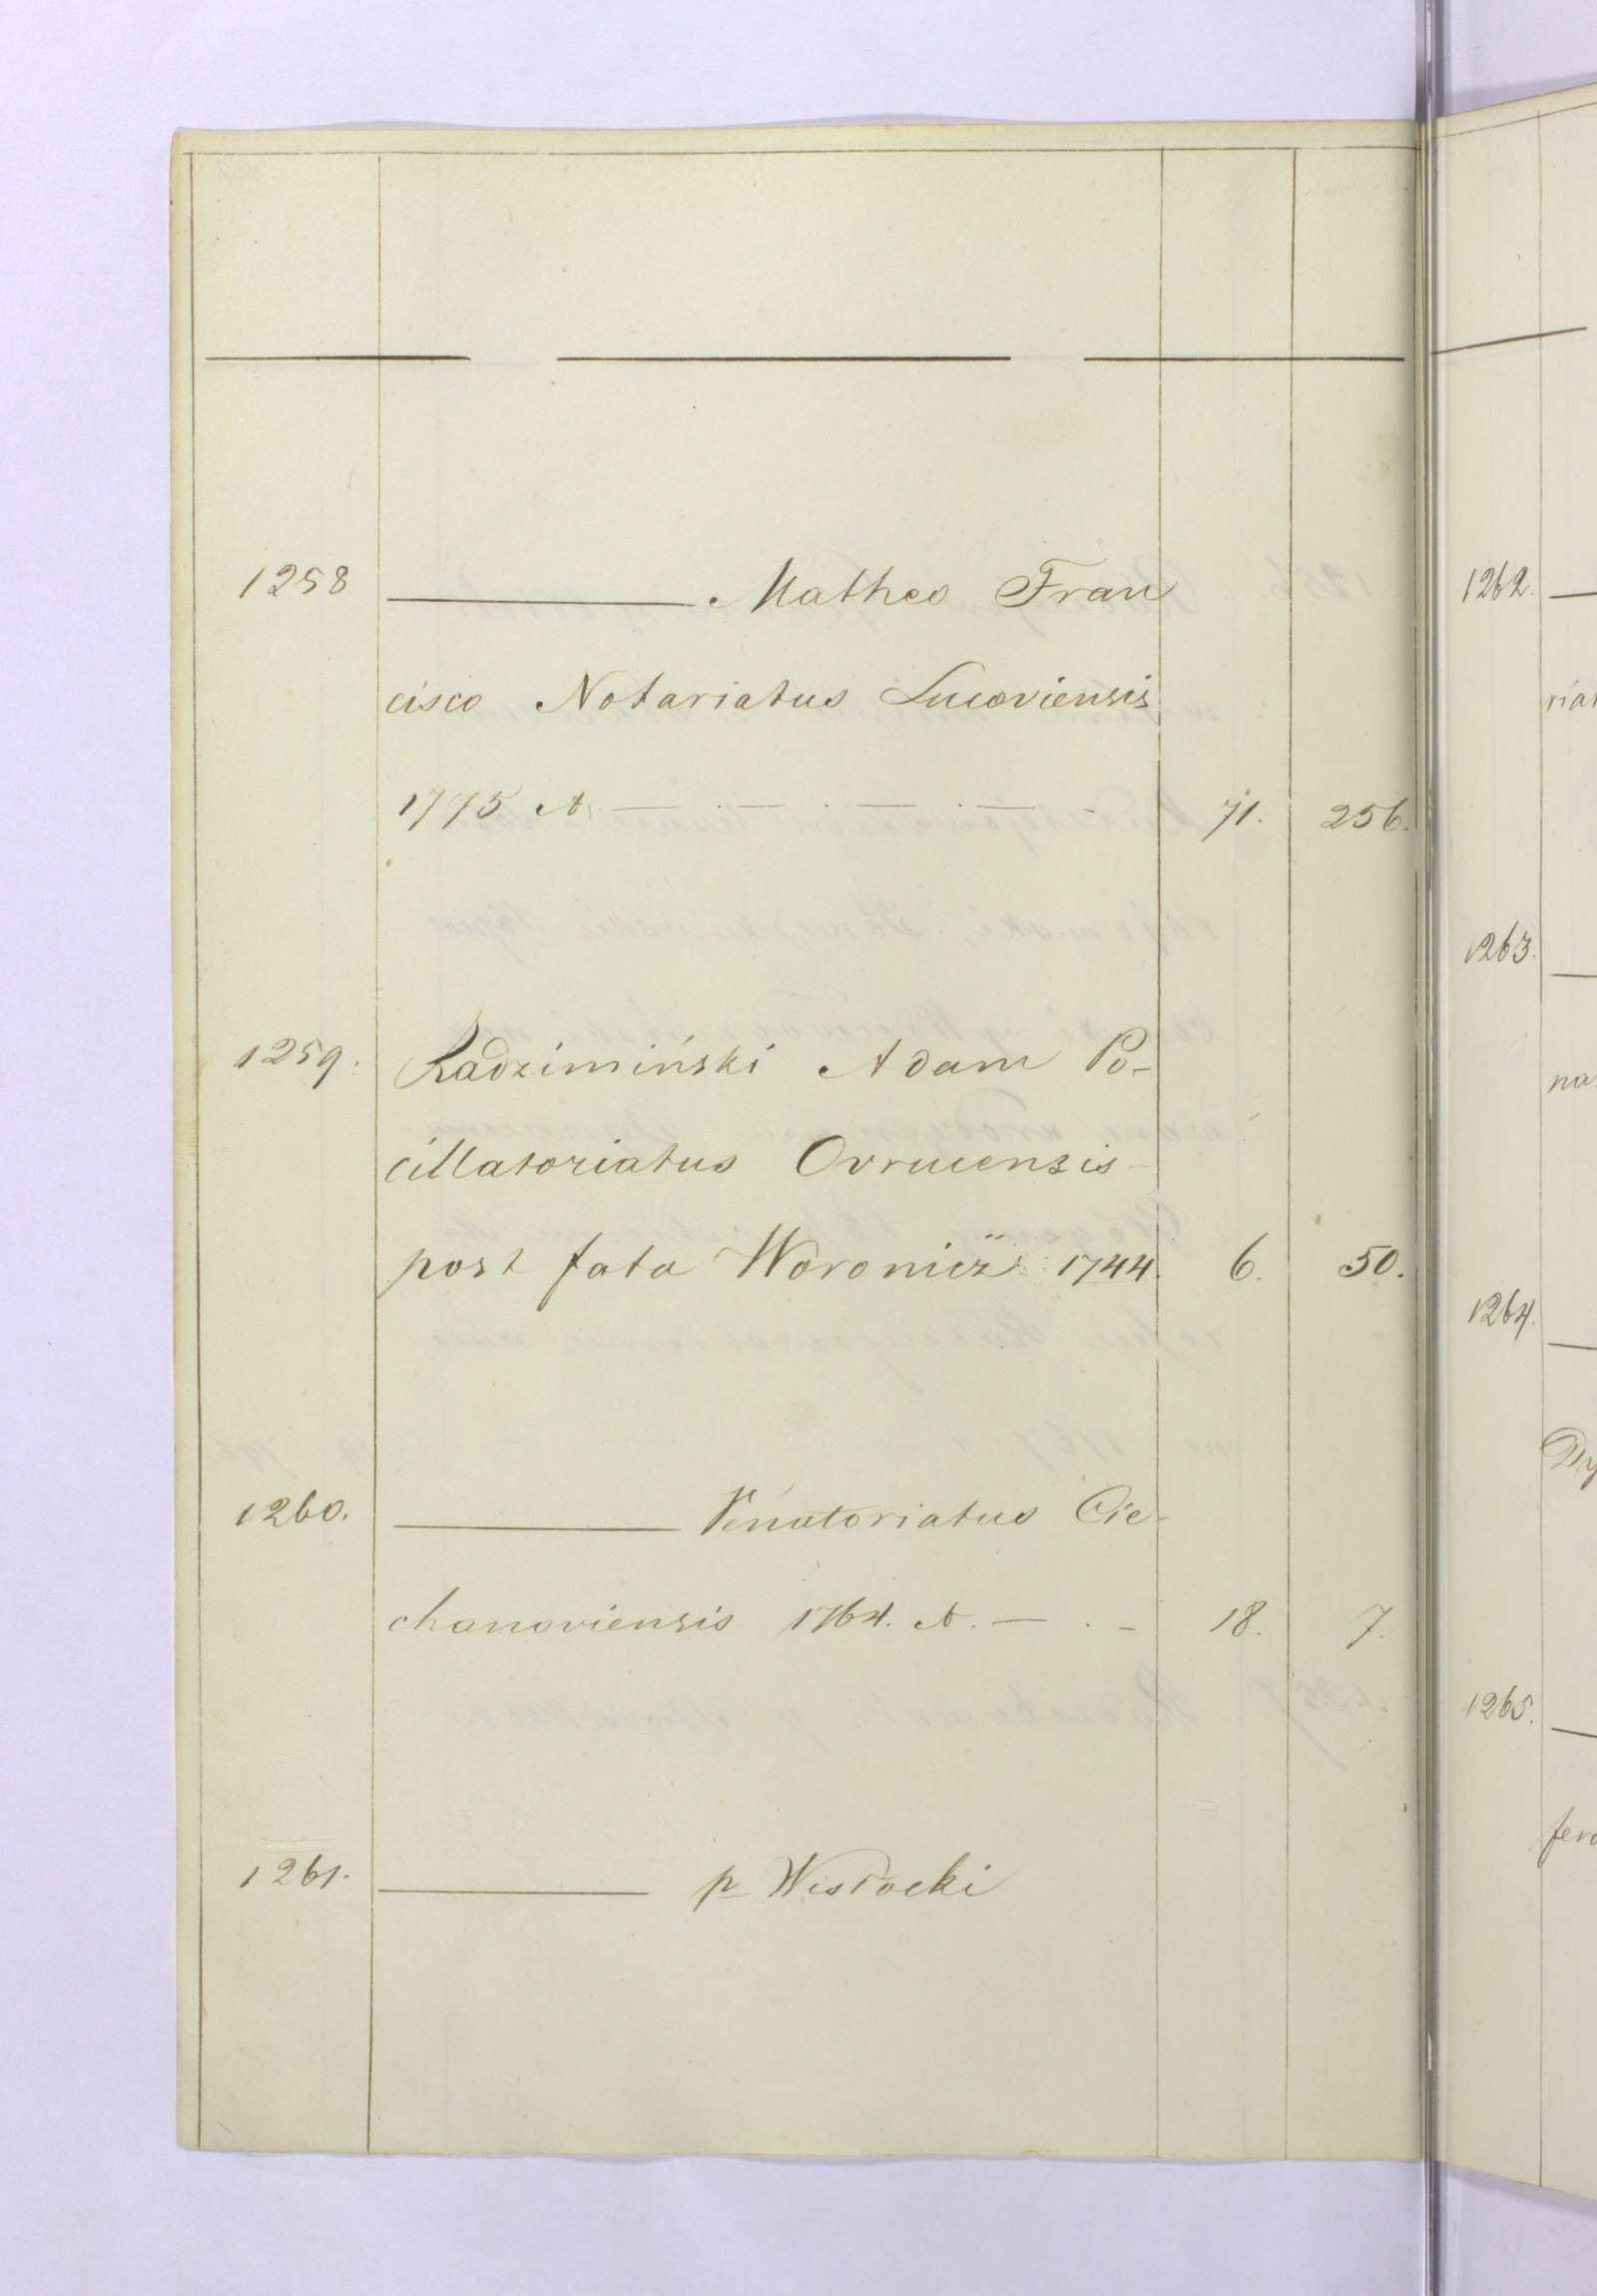 1258 ——— Matheo Fran
cisco Notariatus Lucoviensis
1775 A. — . — . — . — - 71. 256.
1259. Radzimiński Adam Po-
cillatoriatus Ovrucensis
post fata Woronicz 1744. 6. 50.
1260. ——— Venatoriatus Cie-
chanoviensis 1764. A. — . - 18. 7.
1261. ——— p Wisłocki
1262. —
riat
1263. —
na
1264. —
Dy
1265. —
fero